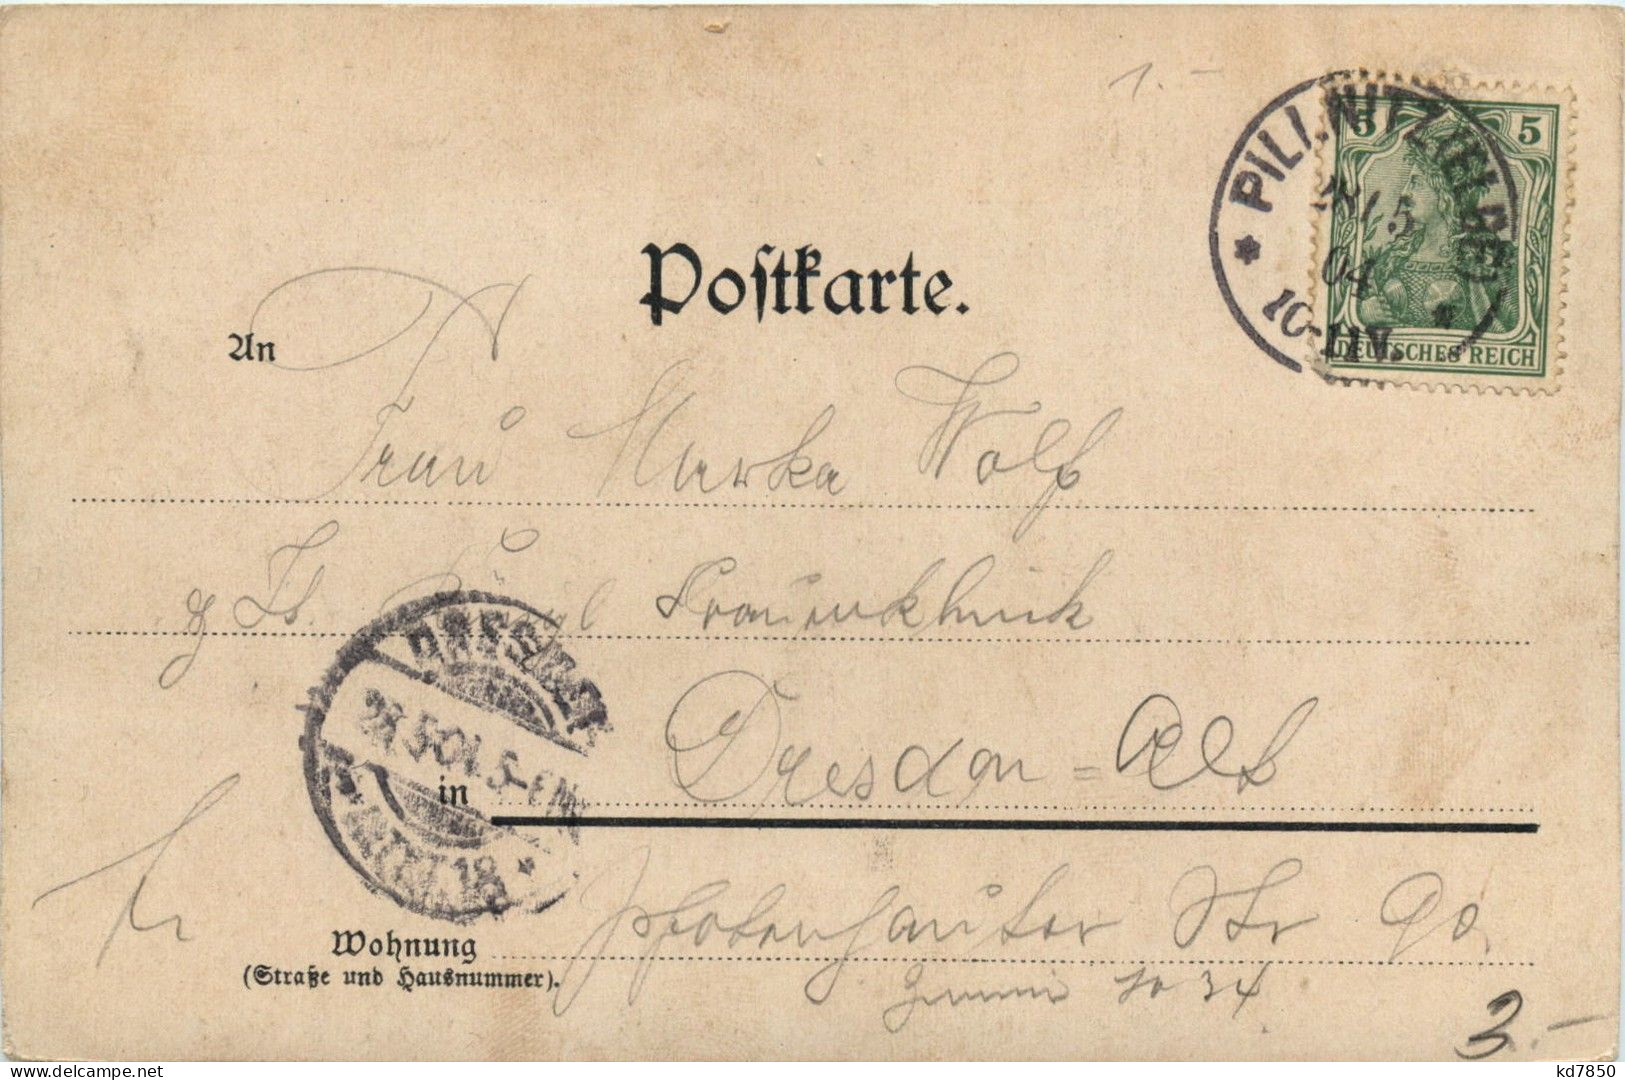 1.-
PILLNITZ (ELBE)
5
5
5
04
10-11V.
DEUTSCHES REICH
Postkarte.
An
Frau Wolf
Königl Frauenklinik
DRESDEN
5.04. 5-6N
ALTST. 18
in Dresden=Alt
Wohnung
Pfotenhauer Str 90.
(Straße und Hausnummer).
Zimmer No 34
3.-
kd7850